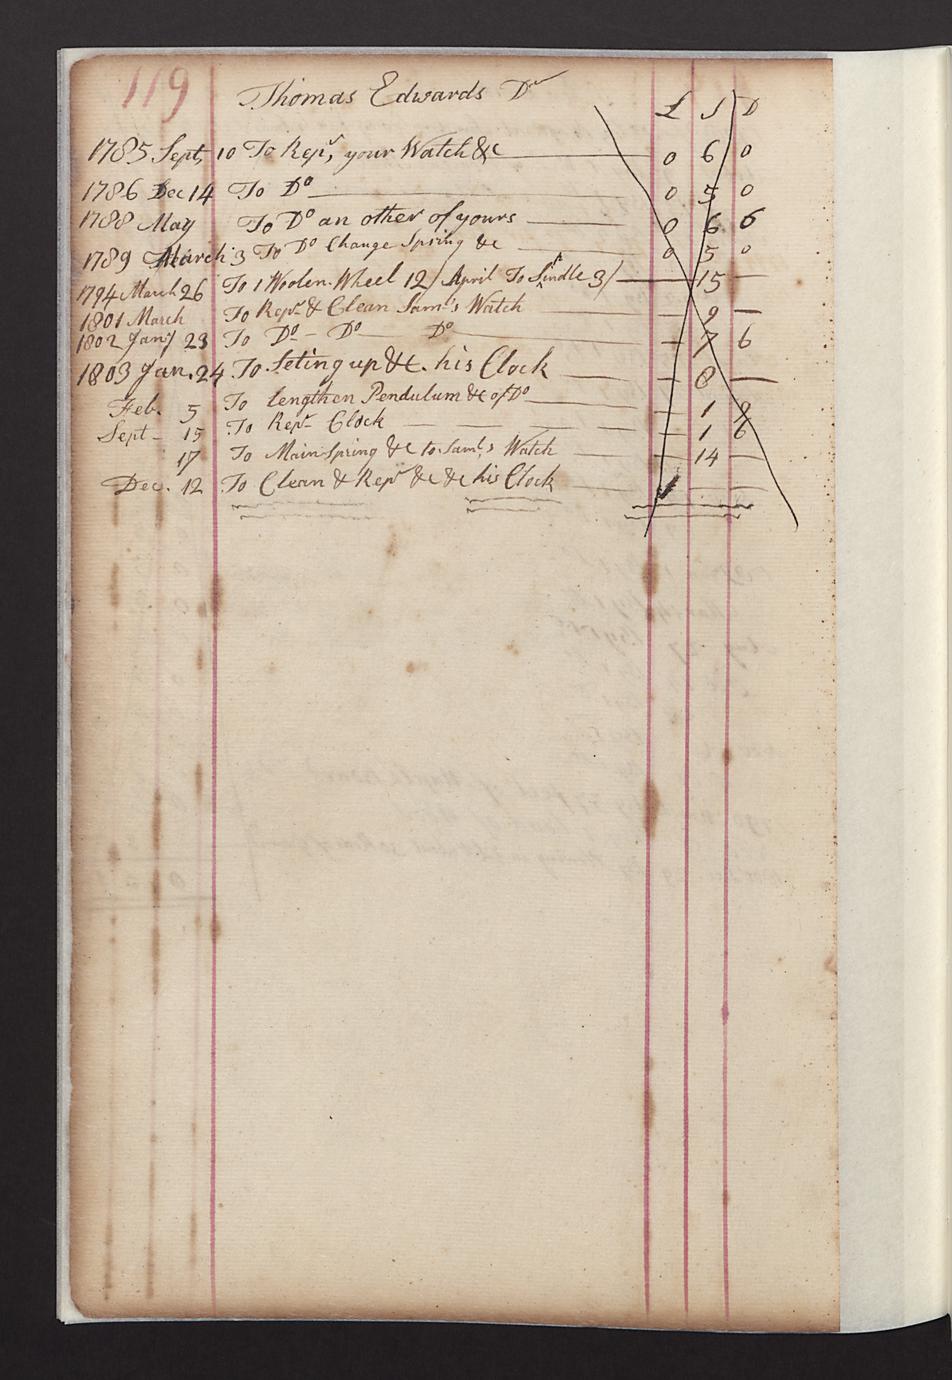 119
Thomas Edwards Dr £ S D
1785 Sept, 10 To Repr, your Watch &c 0 6 0
1786 Dec 14 To Do 0 5 0
1788 May To Do an other of yours 0 6 6
1789 March 3 To Do Change Spring &c 0 5 0
1794 March 26 To 1 Woolen Wheel 12/ April To Spindle 3/ — 15 —
1801 March To Repr & Clean Saml's Watch — 9 —
1802 Jany 23 To Do – Do Do — 7 6
1803 Jan. 24 To Seting up &c. his Clock — 8 —
Feb. 5 To lengthen Pendulum &c of Do — 1 9
Sept – 15 To Repr Clock — 1 6
17 To Main Spring &c to Saml's Watch — 14 —
Dec. 12 To Clean & Repr &c &c his Clock 1 — —